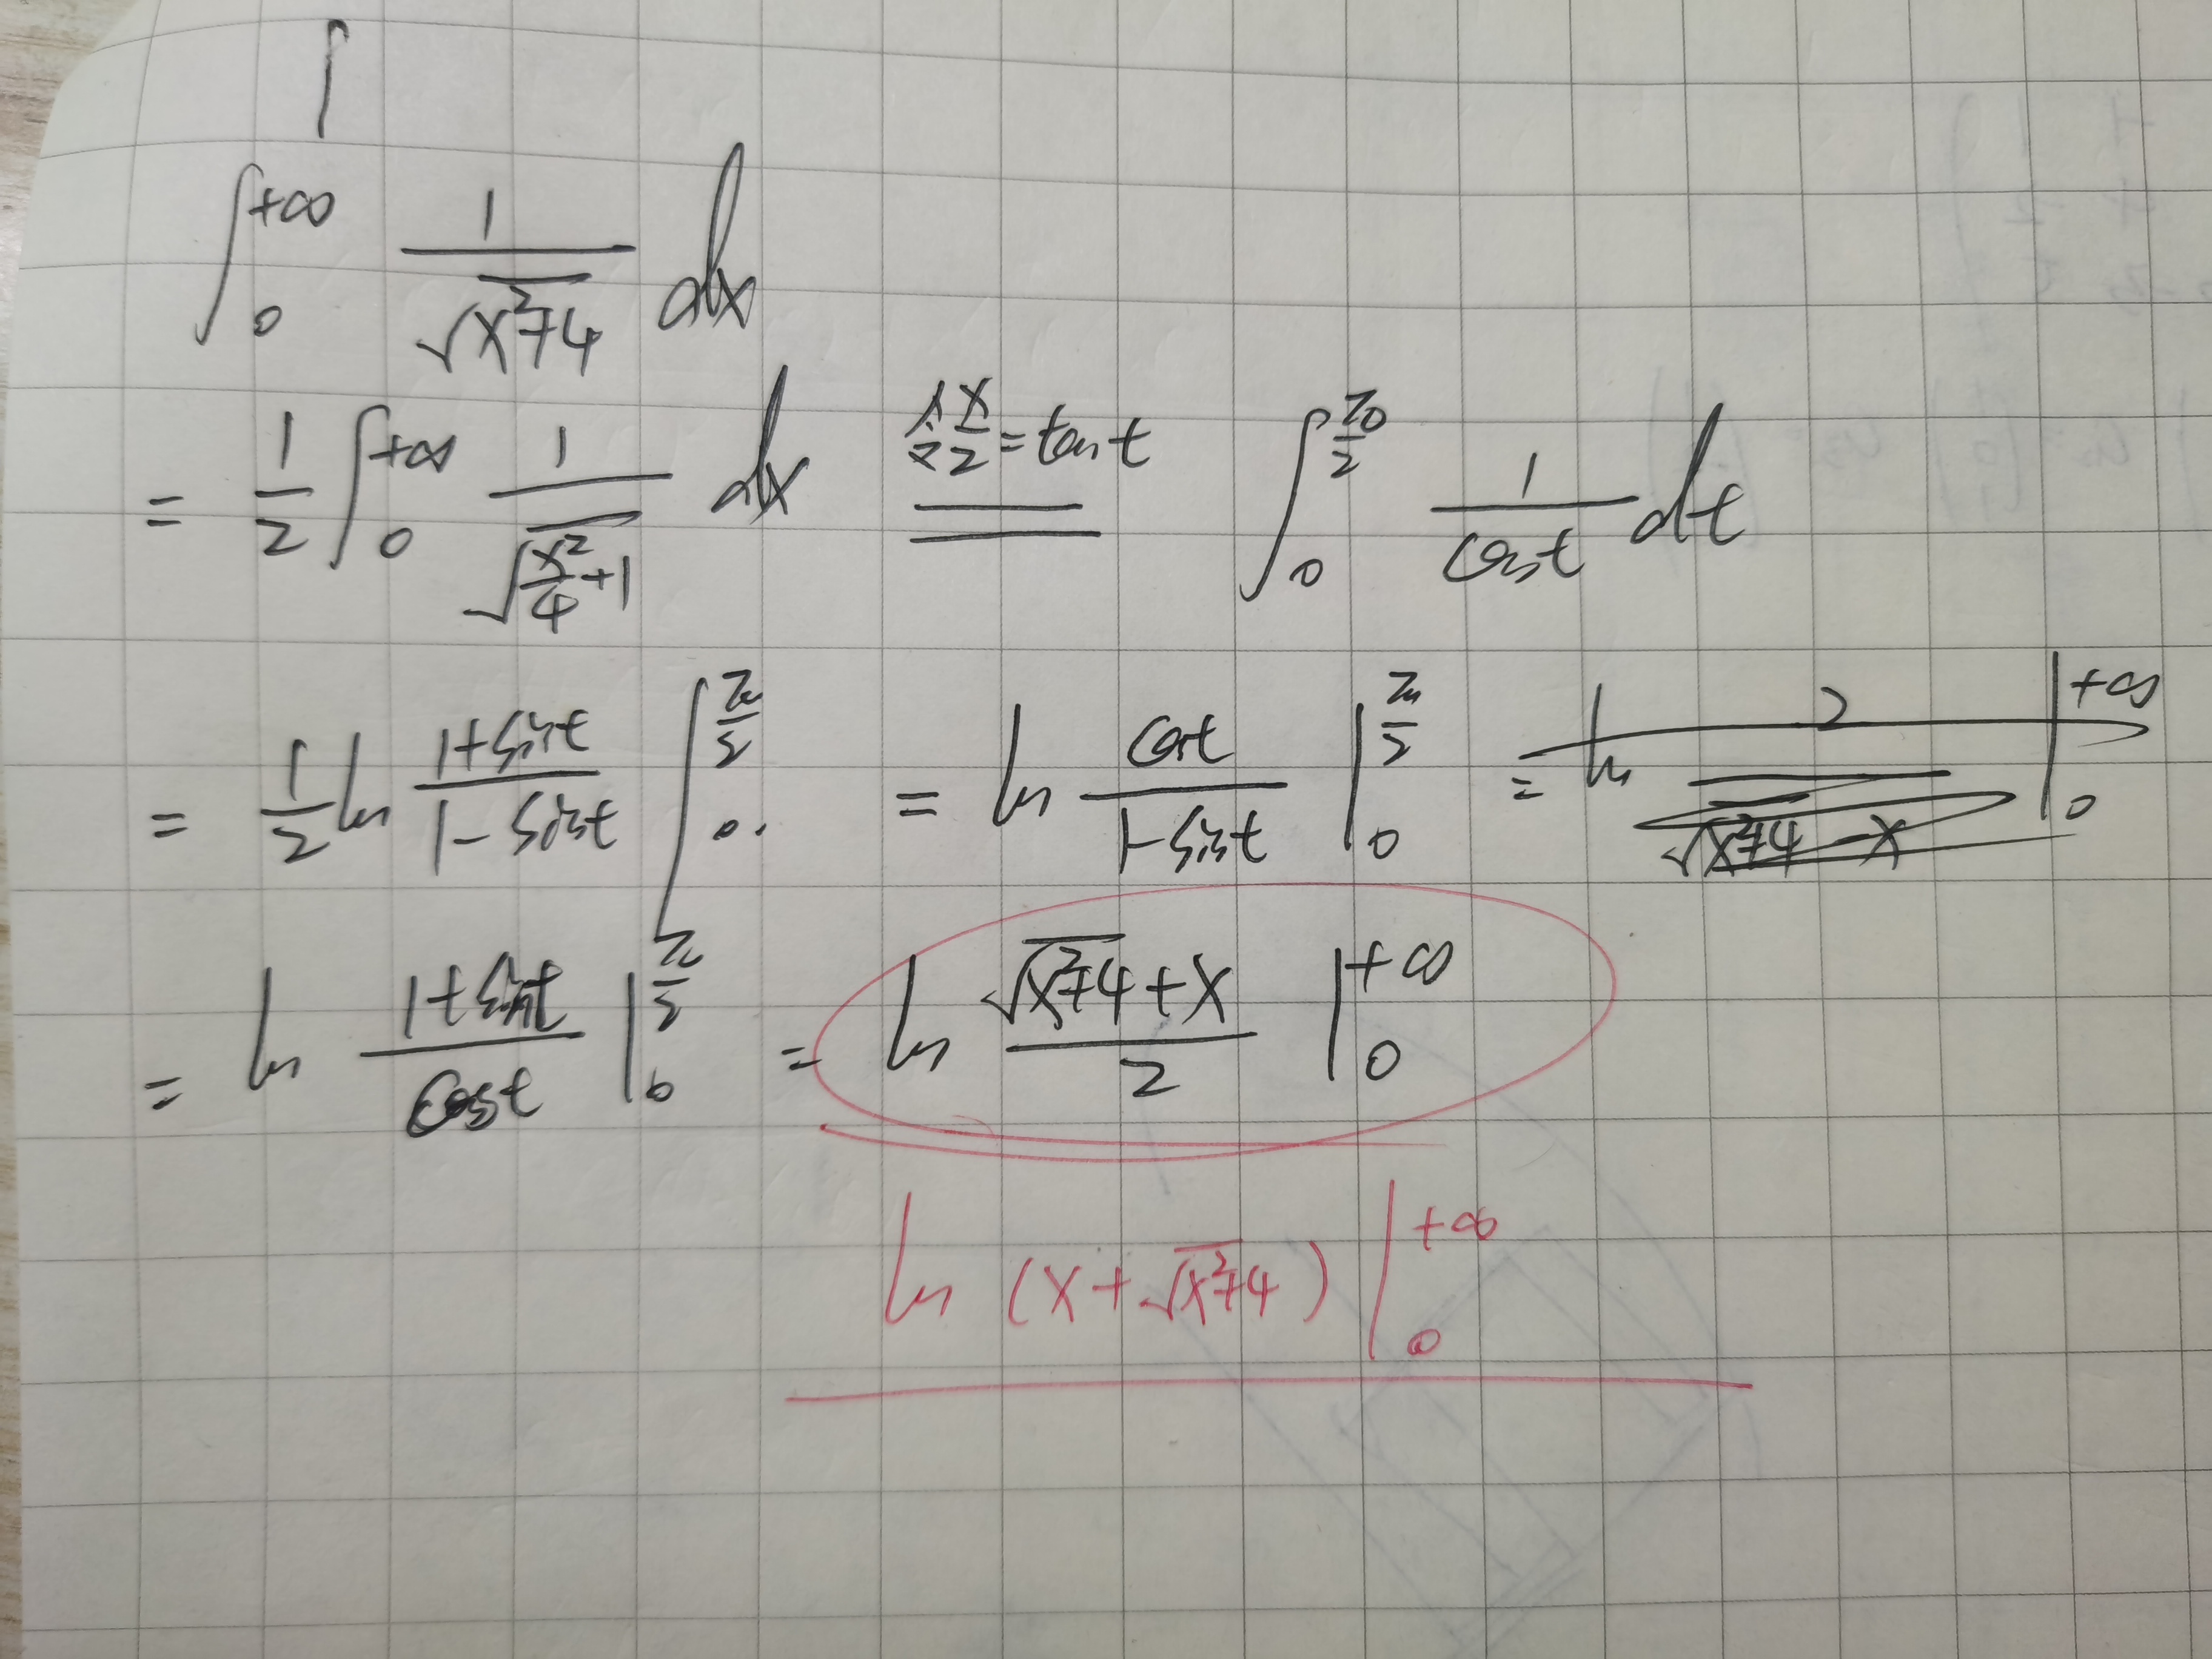 ∫
∫₀^{+∞} 1/√(x²+4) dx
= 1/2 ∫₀^{+∞} 1/√(x²/4+1) dx 令 x/2 = tan t ∫₀^{π/2} 1/cost dt
= 1/2 ln (1+sint)/(1-sint) |₀^{π/2} = ln cost/(1-sint) |₀^{π/2} = ln 2/(√(x²+4)-x) |₀^{+∞}
= ln (1+sint)/cost |₀^{π/2} = ln (√(x²+4)+x)/2 |₀^{+∞}
ln (x+√(x²+4)) |₀^{+∞}